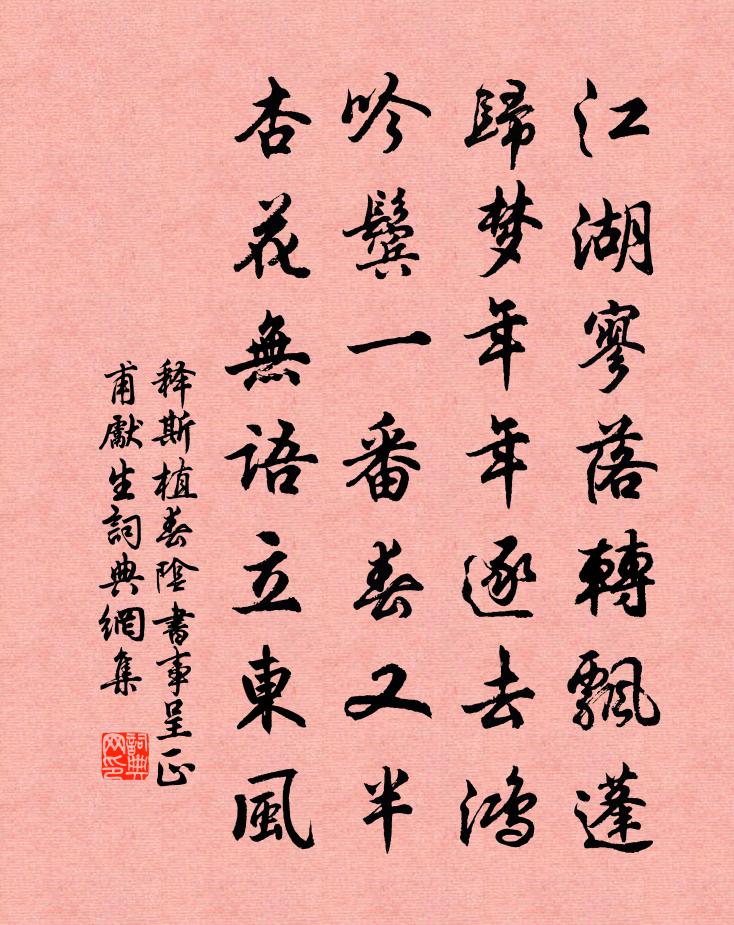 江湖寥落轉飄蓬
歸梦年年逐去鴻
吟鬢一番春又半
杏花無語立東風
释斯植春陰書事呈正
甫獻生詞典網集
詞典
网印